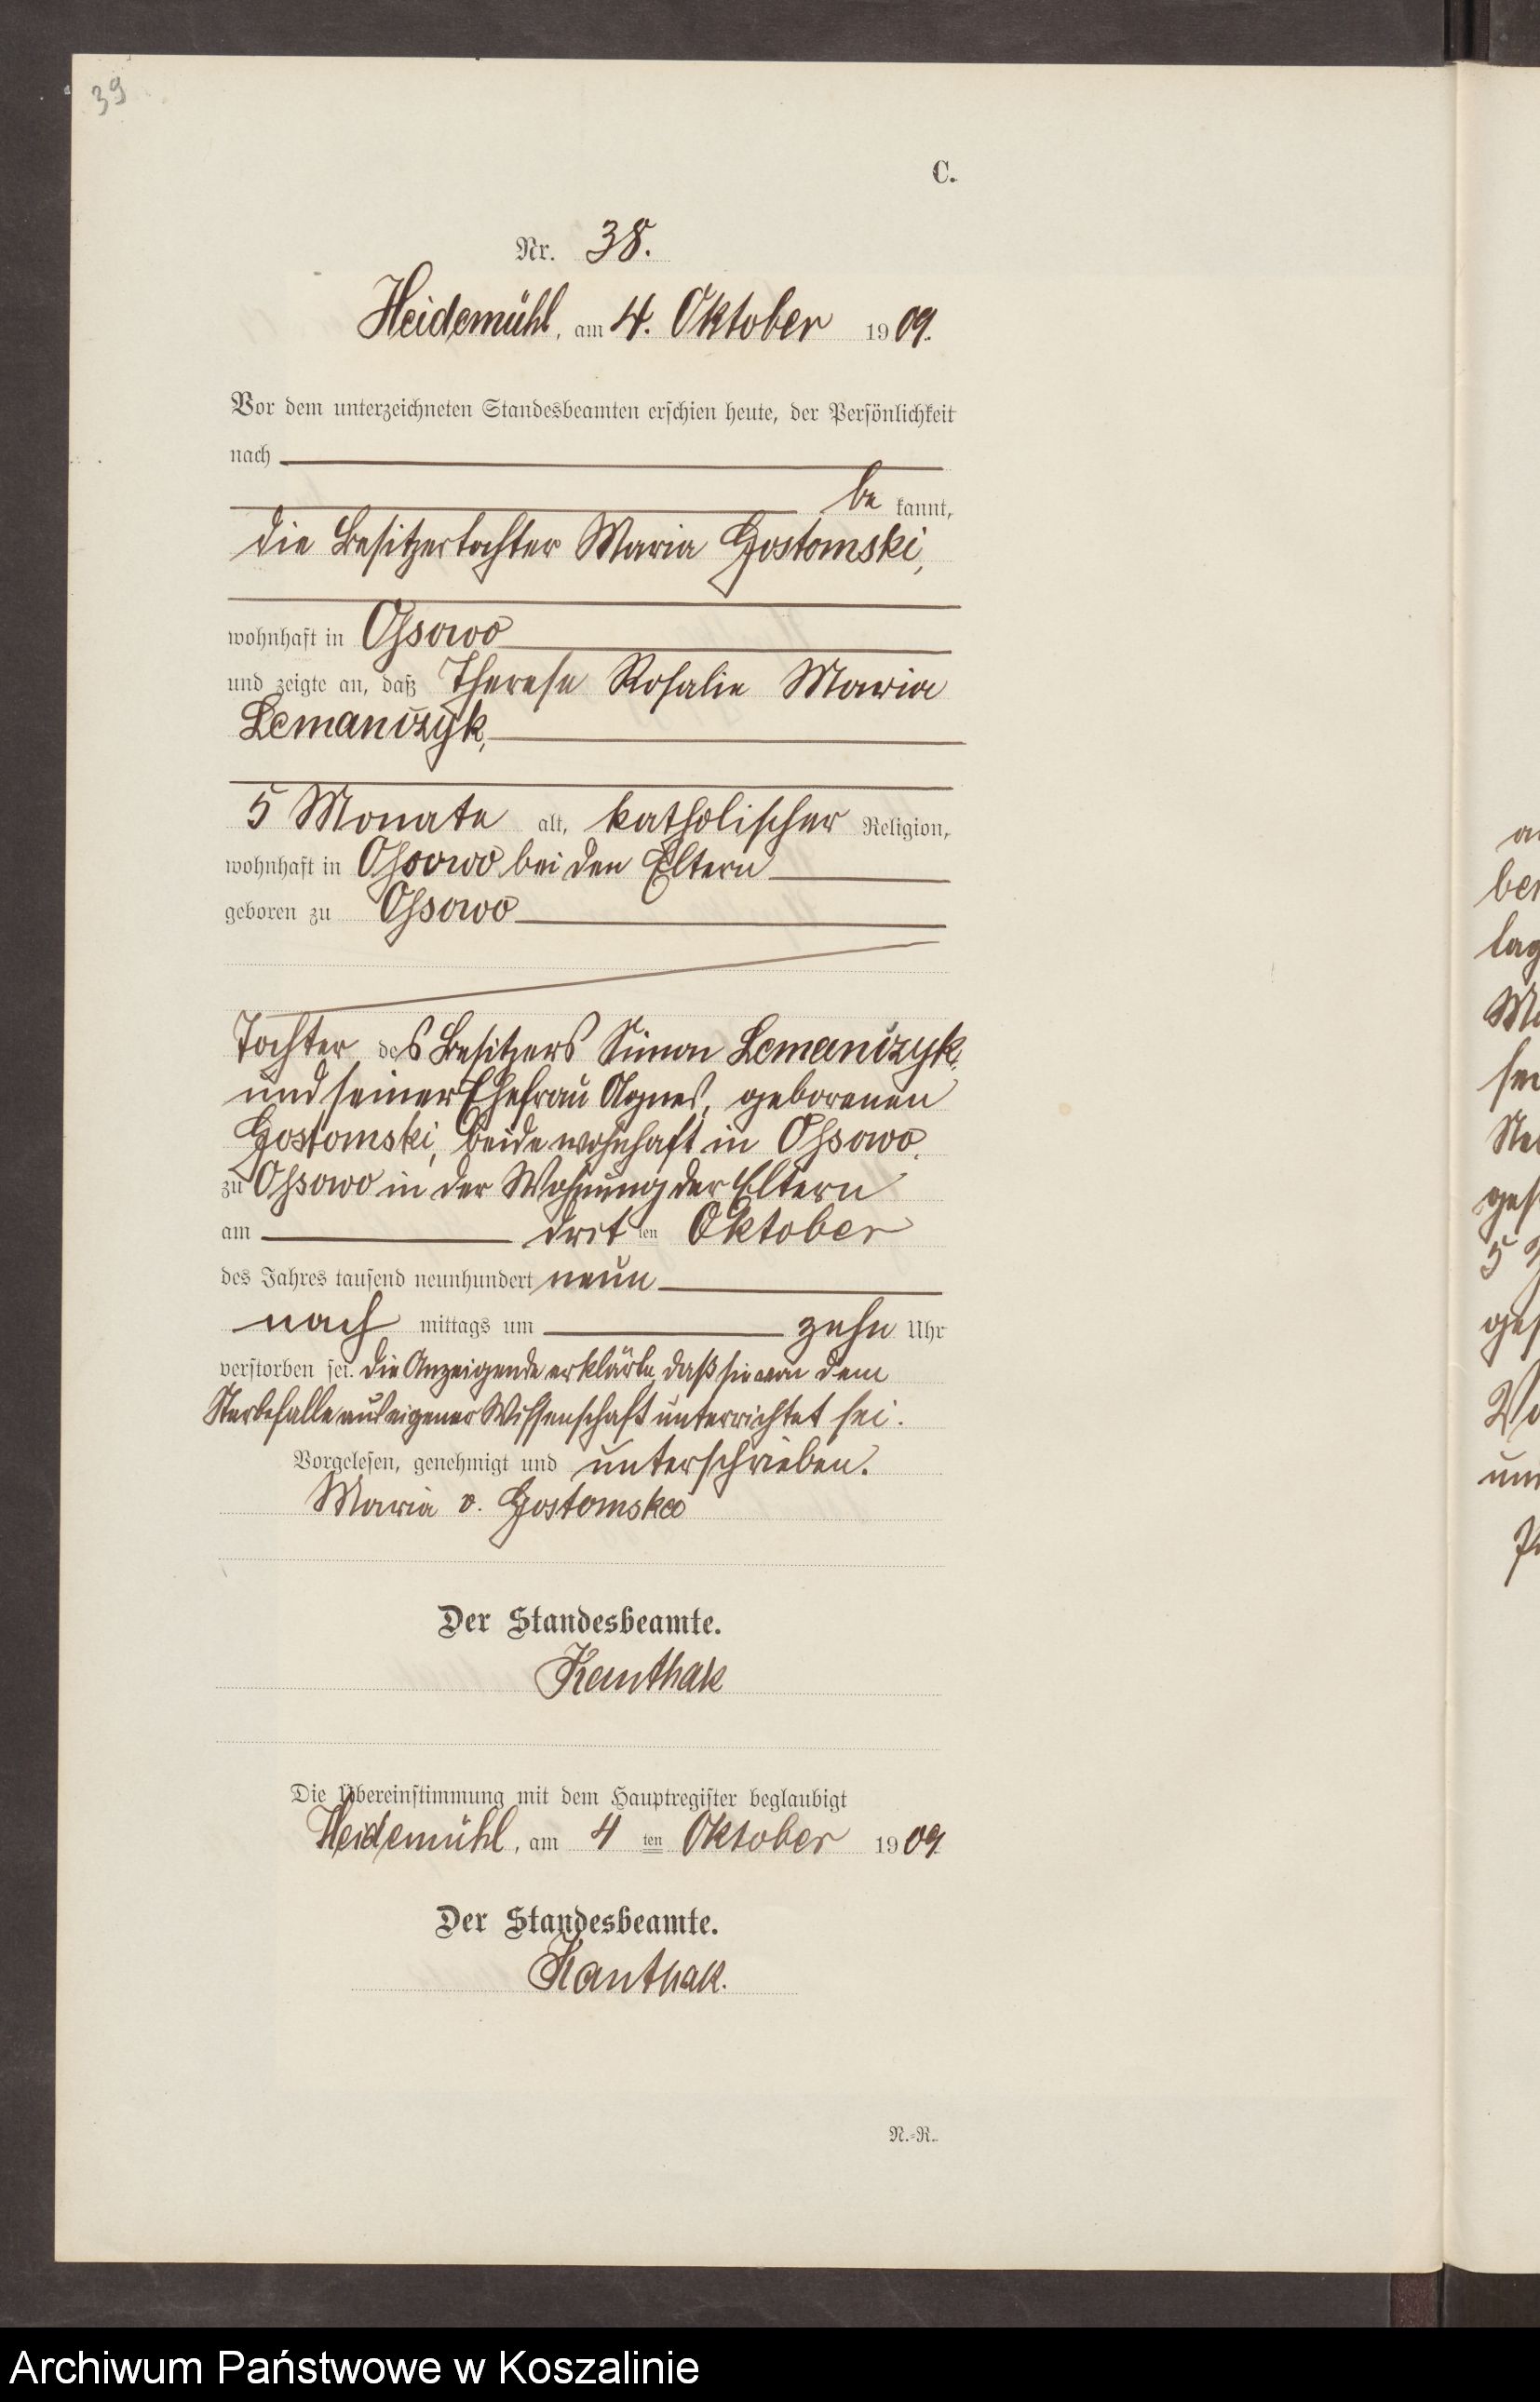 39
C.
Nr. 38.
Heidemühl, am 4. Oktober 1909.
Vor dem unterzeichneten Standesbeamten erschien heute, der Persönlichkeit
nach
be kannt,
die Besitzertochter Maria Gostomski,
wohnhaft in Ossowo
und zeigte an, daß Therese Rosalie Maria
Lemańczyk,
5 Monate alt, katholischer Religion,
wohnhaft in Ossowo bei den Eltern
geboren zu Ossowo
Tochter des Besitzers Simon Lemańczyk
und seiner Ehefrau Agnes, geborenen
Gostomski, beide wohnhaft in Ossowo.
zu Ossowo in der Wohnung der Eltern
am dritten Oktober
des Jahres tausend neunhundert neun
nach mittags um zehn Uhr
verstorben sei. Die Anzeigende erklärte, daß sie von dem
Sterbefalle aus eigener Wissenschaft unterrichtet sei.
Vorgelesen, genehmigt und unterschrieben.
Maria v. Gostomska
Der Standesbeamte.
Kanthak
Die Übereinstimmung mit dem Hauptregister beglaubigt
Heidemühl, am 4 ten Oktober 1909
Der Standesbeamte.
Kanthak.
N.-R.
Archiwum Państwowe w Koszalinie